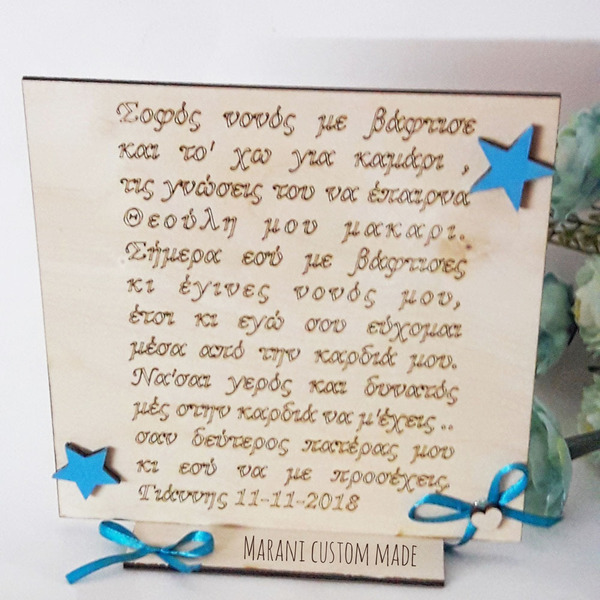 Σοφός νονός με βάφτισε
και το' χω για καμάρι ,
τις γνώσεις του να έπαιρνα
Θεούλη μου μακαρι.
Σήμερα εσύ με βάφτισες
κι έγινες νονός μου,
έτσι κι εγώ σου εύχομαι
μέσα από την καρδιά μου.
Να'σαι γερός και δυνατός
μές στην καρδιά να μ'έχεις ..
σαν δεύτερος πατέρας μου
κι εσύ να με προσέχεις.
Γιάννης 11-11-2018
MARANI CUSTOM MADE